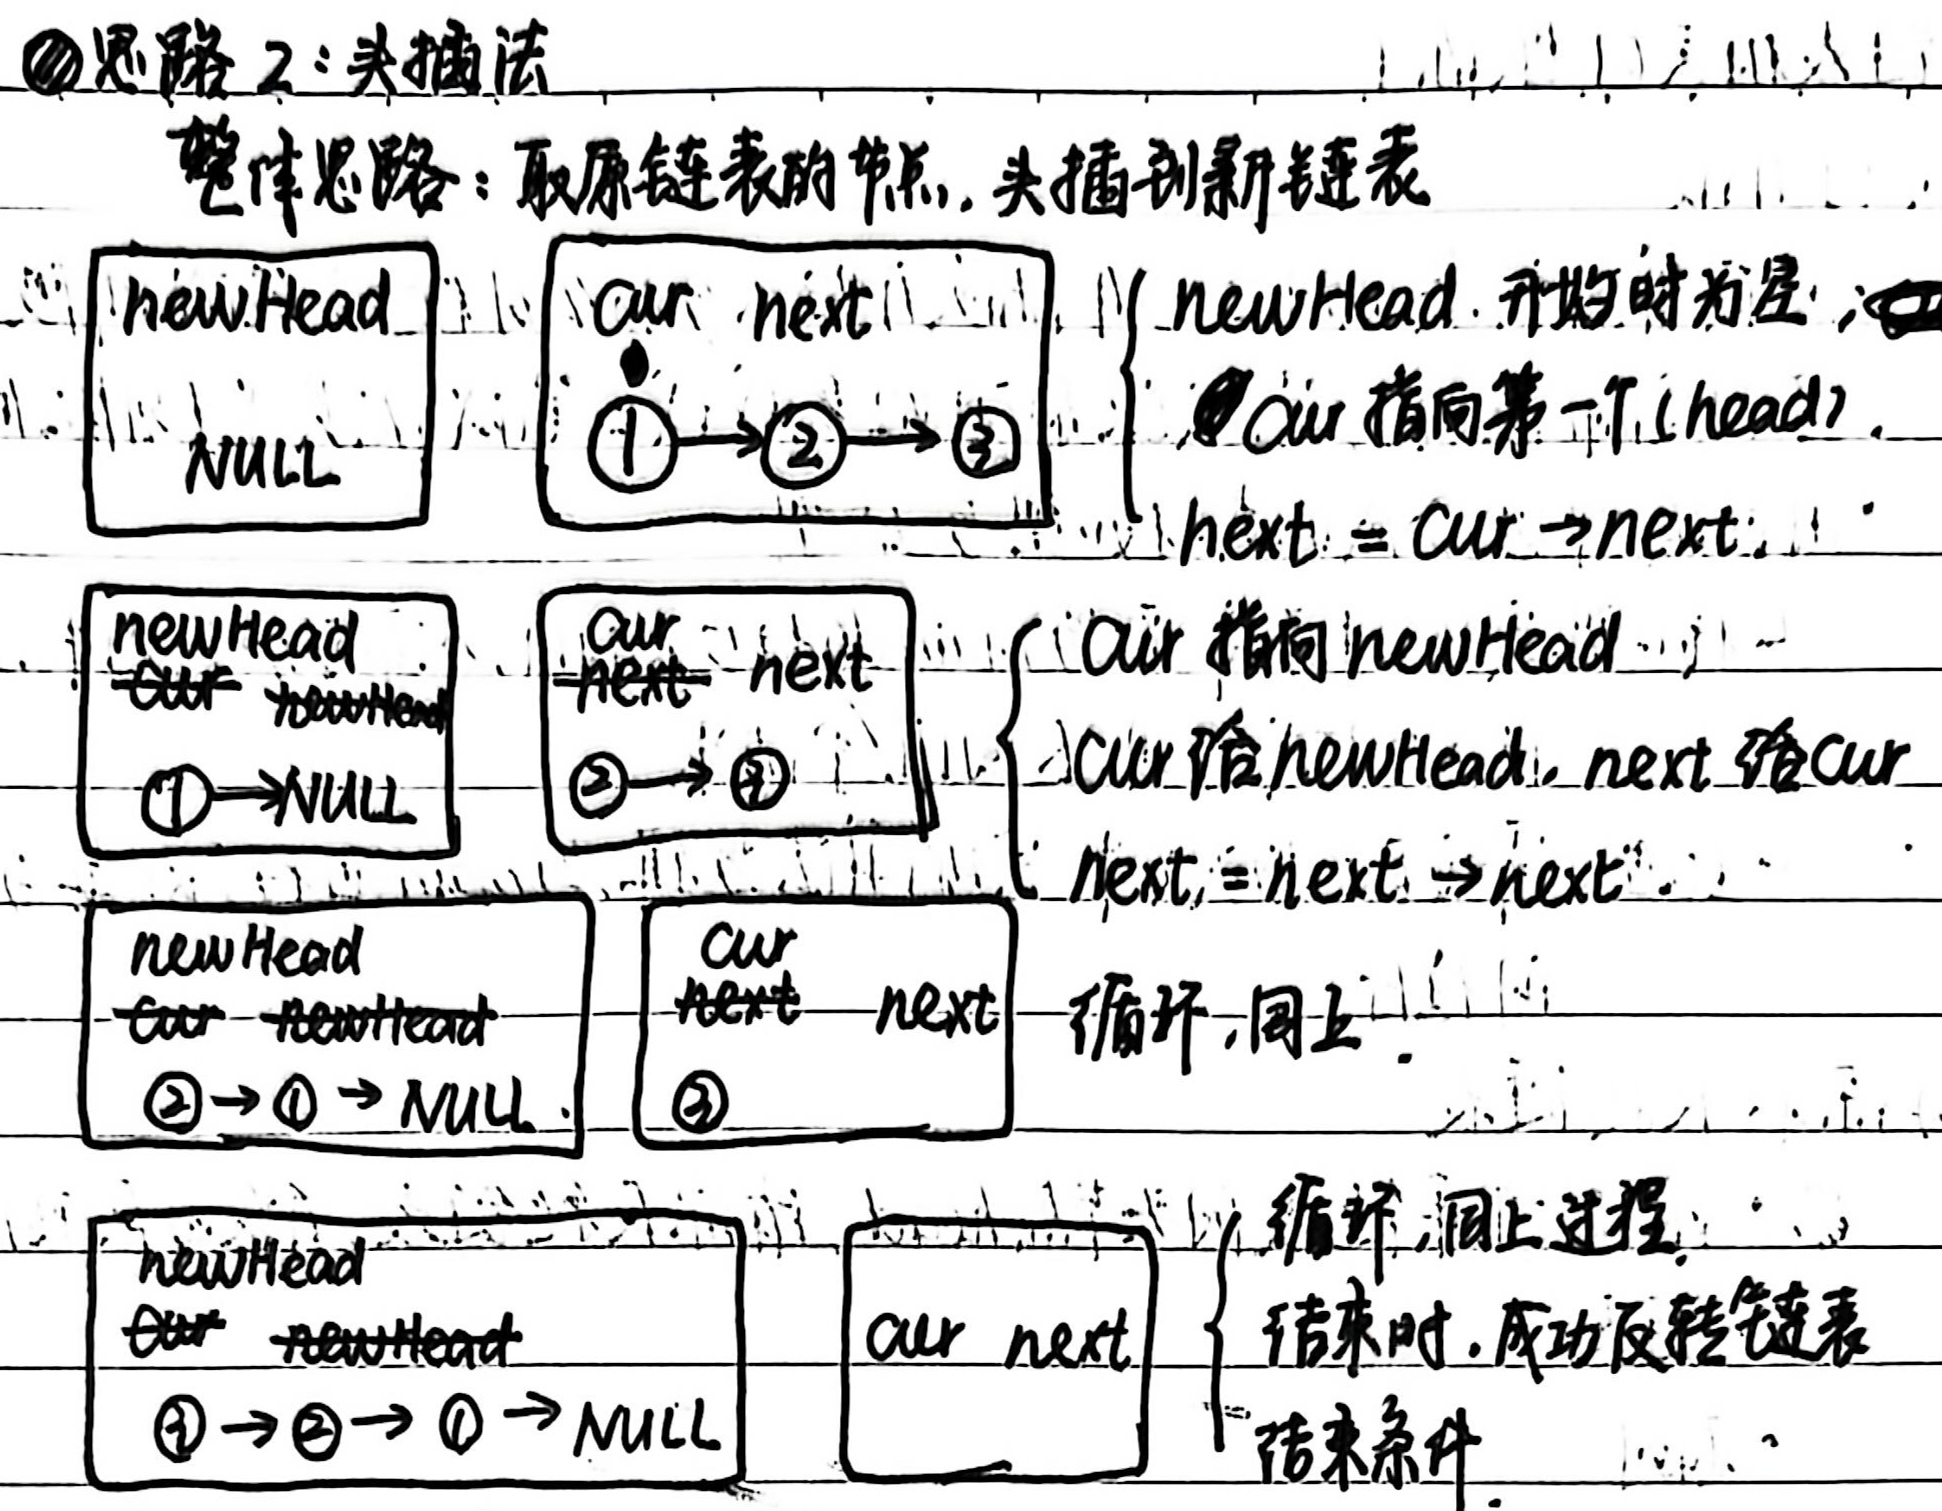 思路 2：头插法
整体思路：取原链表的节点，头插到新链表
newHead
NULL
cur next
① → ② → ③
newHead 开始时为空，
cur 指向第一个（head）
next = cur → next
newHead
cur newHead
① → NULL
cur
next next
② → ③
cur 指向 newHead
cur 给 newHead，next 给 cur
next = next → next
newHead
cur newHead
② → ① → NULL
cur
next next
③
循环，同上
newHead
cur newHead
③ → ② → ① → NULL
cur next
循环，同上过程
结束时，成功反转链表
结束条件